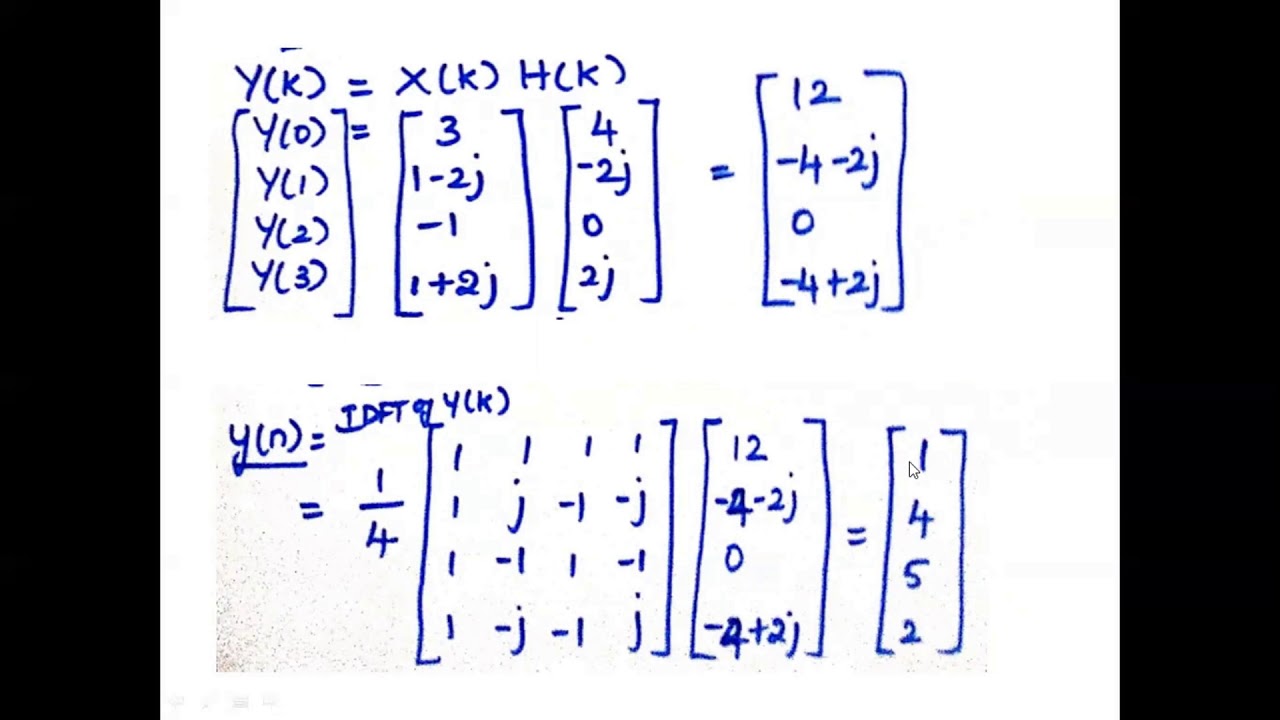 Y(K) = X(K) H(K)
[Y(0) Y(1) Y(2) Y(3)] = [3 1-2j -1 1+2j] [4 -2j 0 2j] = [12 -4-2j 0 -4+2j]
y(n) = IDFT of Y(K)
= 1/4 [1 1 1 1
1 j -1 -j
1 -1 1 -1
1 -j -1 j] [12 -4-2j 0 -4+2j] = [1 4 5 2]